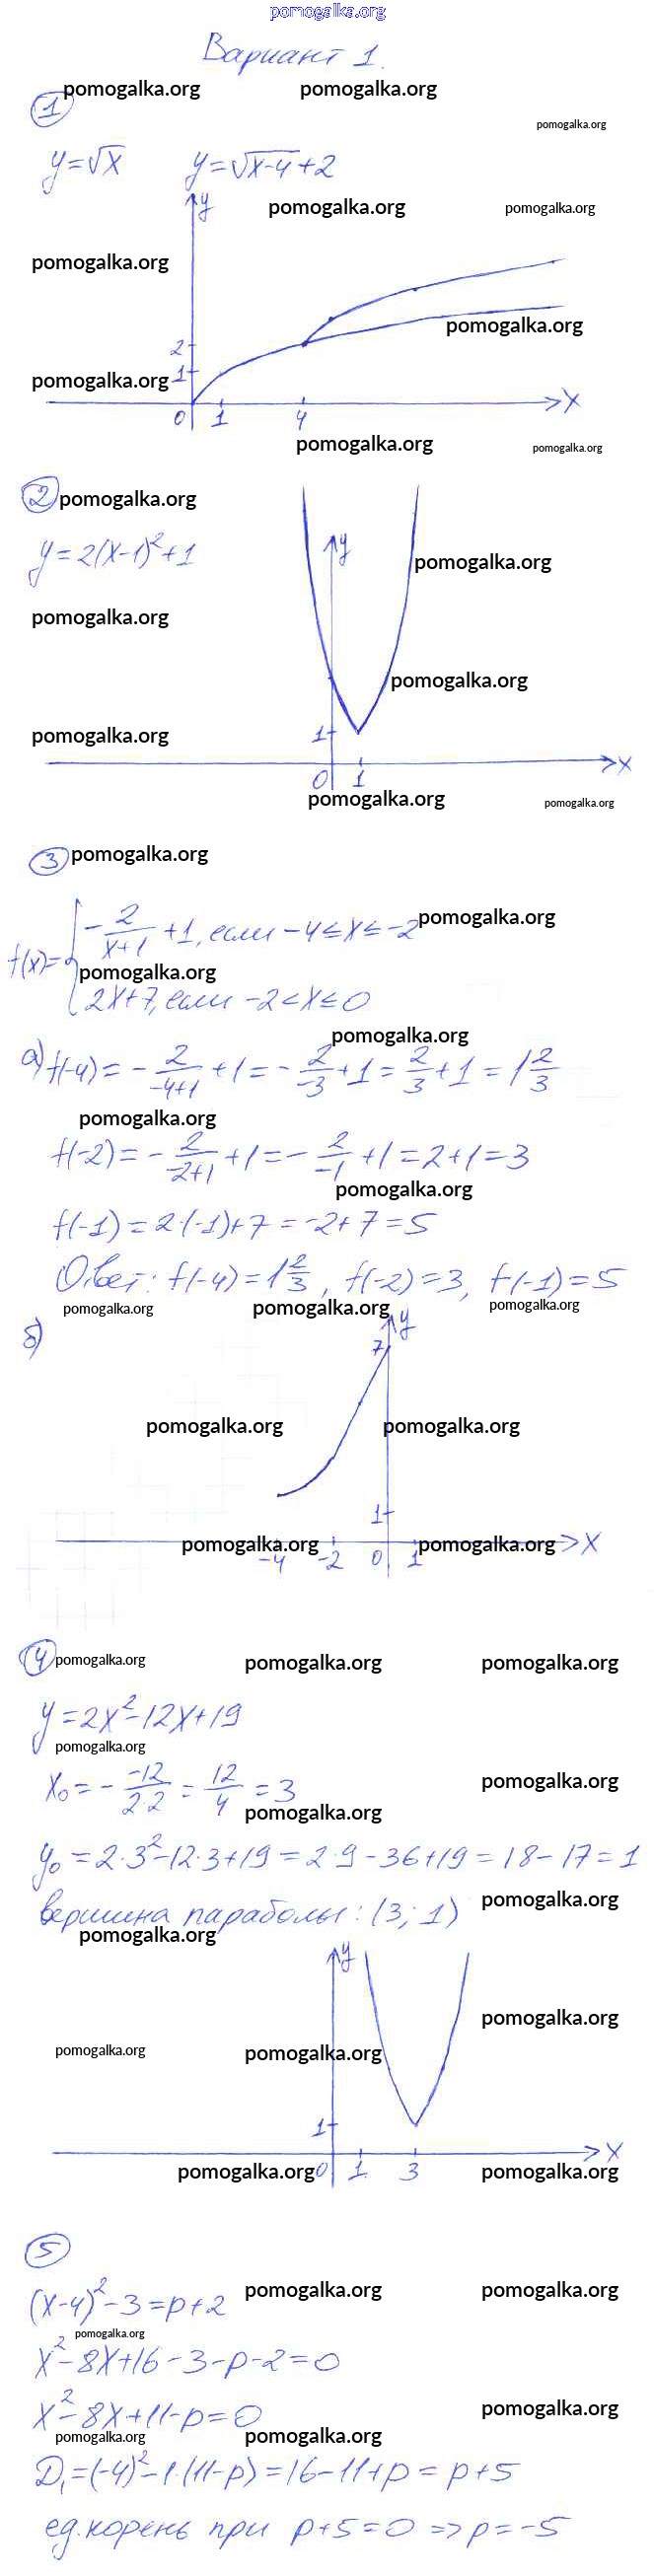 pomogalka.org
Вариант 1.
1 pomogalka.org pomogalka.org
pomogalka.org
y=√x y=√(x-4)+2
y pomogalka.org pomogalka.org
pomogalka.org
pomogalka.org
2
1
pomogalka.org
0 1 4 x
pomogalka.org pomogalka.org
2 pomogalka.org
y=2(x-1)²+1 y
pomogalka.org
pomogalka.org
pomogalka.org
pomogalka.org 1
0 1 x
pomogalka.org pomogalka.org
3 pomogalka.org
f(x)= { -2/(x+1) +1, если -4≤x≤-2 pomogalka.org
pomogalka.org
2x+7, если -2<x≤0
pomogalka.org
а) f(-4)= -2/(-4+1) +1= -2/(-3) +1= 2/3 +1= 1 2/3
pomogalka.org
f(-2)= -2/(-2+1) +1= -2/(-1) +1=2+1=3
pomogalka.org
f(-1)=2·(-1)+7=-2+7=5
Ответ: f(-4)=1 2/3, f(-2)=3, f(-1)=5
pomogalka.org pomogalka.org pomogalka.org
б) y
7
pomogalka.org pomogalka.org
1
pomogalka.org pomogalka.org x
-4 -2 0 1
4 pomogalka.org pomogalka.org pomogalka.org
y=2x²-12x+19
pomogalka.org
x₀= - -12/(2·2) = 12/4 =3 pomogalka.org
pomogalka.org
y₀=2·3²-12·3+19=2·9-36+19=18-17=1
вершина параболы: (3; 1) pomogalka.org
pomogalka.org
y
pomogalka.org
pomogalka.org pomogalka.org
1
x
pomogalka.org 0 1 3 pomogalka.org
5
(x-4)²-3=p+2 pomogalka.org pomogalka.org
pomogalka.org
x²-8x+16-3-p-2=0
x²-8x+11-p=0 pomogalka.org
pomogalka.org pomogalka.org
D₁=(-4)²-1·(11-p)=16-11+p=p+5
ед. корень при p+5=0 => p=-5